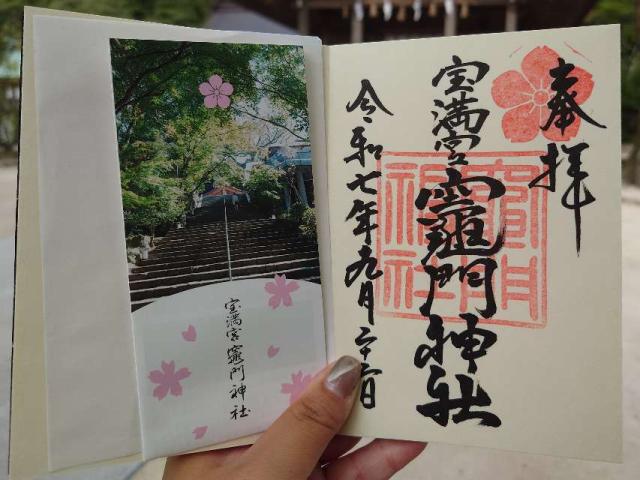 奉拝
宝満宮 竈門神社
竈門
神社
令和七年九月二十二日
宝満宮 竈門神社